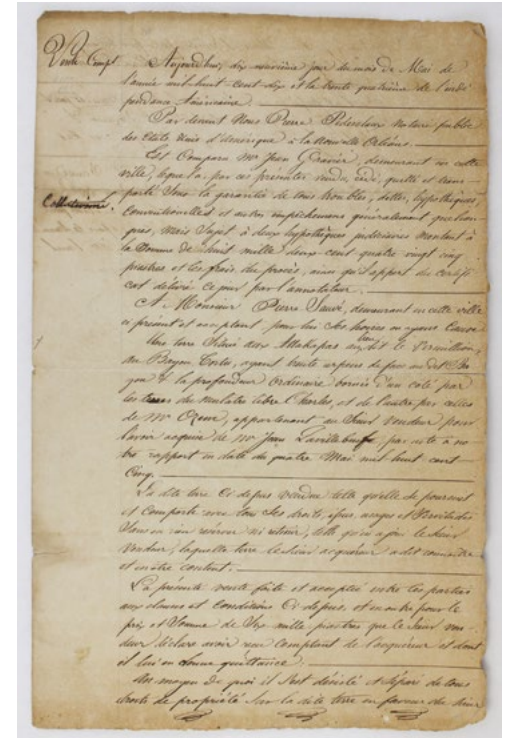 Vente Compt
Aujourdhuy dix neuvième jour du mois de Mai de
l'année mil-huit-cent-dix et la trente quatrième de l'indé
pendance Américaine.
Par devant Nous Pierre Pedesclaux Notaire public
des Etats Unis d'Amérique à la Nouvelle Orléans.
Est Comparu Mr Jean Gravier, demeurant en cette
ville, lequel a par ces présentes vendu, cédé, quitté et trans
porté sous la garantie de tous troubles, dettes, hypothèques,
Collationné.
conventionnelles et autres empêchemens generalement quelcon
ques, mais sujet à deux hypothèques judiciaires montant à
la somme de huit mille deux-cent quatre vingt cinq
piastres et les frais du procès, ainsi qu'il appert du certifi
cat délivré ce jour par l'annotateur.
A Monsieur Pierre Sauvé, demeurant en cette ville
ci présent et acceptant pour lui ses hoires ou ayans Cause
Une terre située aux Attakapas au lieu dit le Vermillion,
au Bayou Tortu, ayant trente arpens de face au dit Ba
you & la profondeur Ordinaire bornée d'un coté par
les terres du mulatre libre Charles, et de l'autre par celles
de Mr, appartenant au Sieur Vendeur pour
l'avoir acquise de Mr Jean, par acte à no
tre rapport en date du quatre Mai mil huit cent
Cinq.
La dite terre Ci dessus Vendue telle qu'elle se poursuit
et Comporte avec tous ses droits, us, usages et Servitudes
Sans en rien réserver ni retenir, telle qu'en a joui le Sieur
Vendeur, laquelle terre le Sieur acquéreur a dit connaitre
et en être content.
La présente vente faite et acceptée entre les parties
aux clauses et Conditions Ci dessus, et en outre pour le
prix et Somme de Six mille piastres que le Sieur ven
deur déclare avoir reçu Comptant de l'acquéreur et dont
il lui en donne quittance.
Au moyen de quoi il s'est désisté et séparé de tous
droits de propriété sur la dite terre en faveur du Sieur